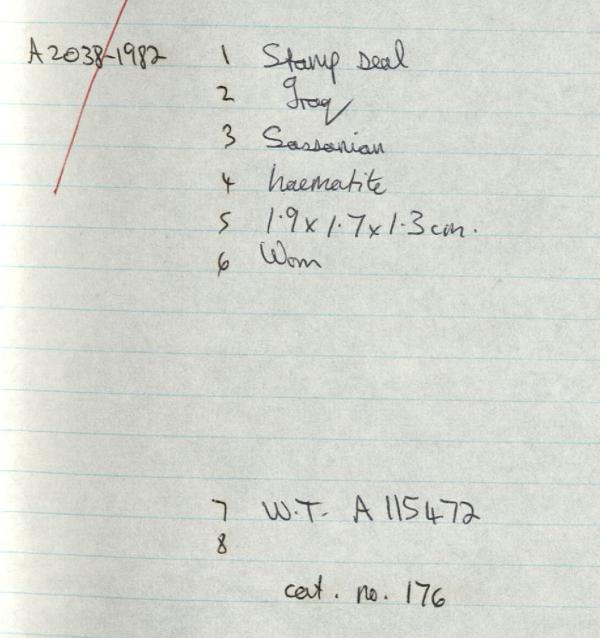 A2038-1982 1 Stamp seal
2 Iraq
3 Sassanian
4 haematite
5 1·9 x 1·7 x 1·3 cm.
6 Worn
7 W.T. A 115472
8
cat. no. 176